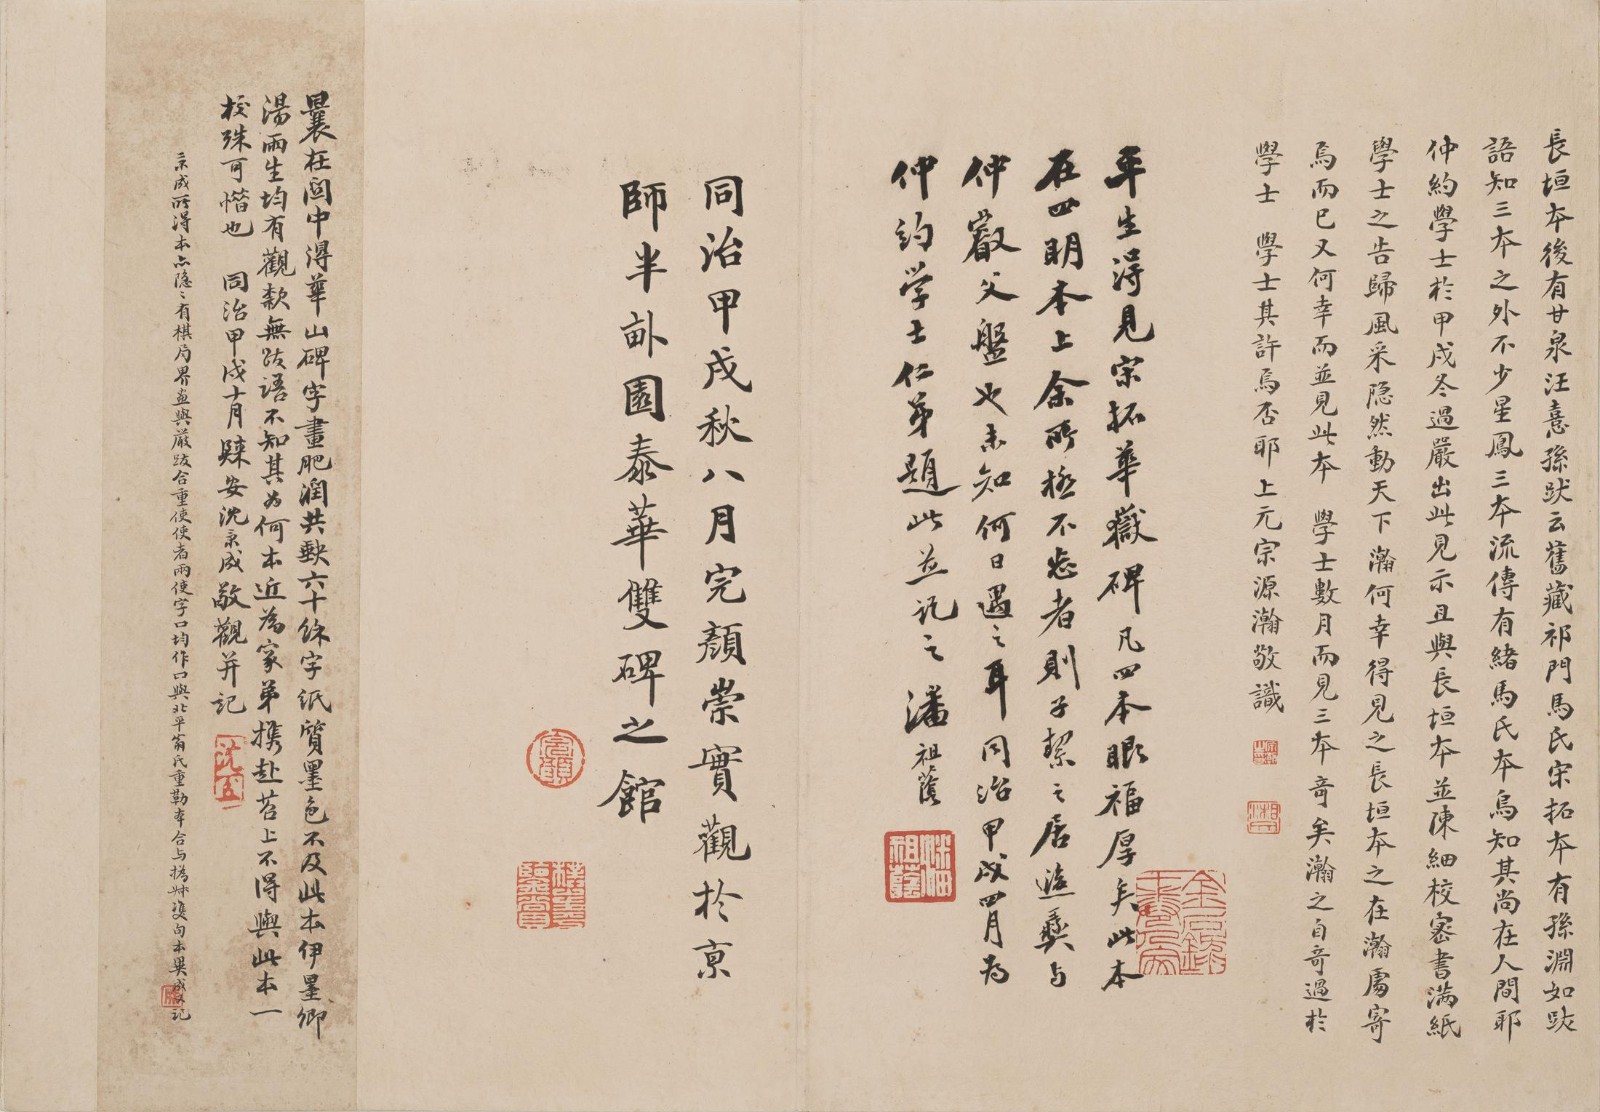 長垣本後有甘泉汪憙孫跋云舊藏祁門馬氏宋拓本有孫淵如跋
語知三本之外不少星鳳三本流傳有緒馬氏本烏知其尚在人間耶
仲約學士於甲戌冬過嚴出此見示且與長垣本並陳細校密書滿紙
學士之告歸風采隱然動天下瀚何幸得見之長垣本之在瀚處寄
焉而已又何幸而並見此本 學士數月而見三本奇矣瀚之自奇過於
學士 學士其許焉否耶上元宗源瀚敬識
平生得見宋拓華嶽碑凡四本眼福厚矣此本
在四明本上余所極不忘者則子絜之居
仲敭父盤也未知何日遇之耳同治甲戌四月為
仲約學士仁弟題此並記之 潘祖蔭
潘祖蔭
同治甲戌秋八月完顏崇實觀於京
師半畝園泰華雙碑之館
完顏
曩在閩中得華山碑字畫肥潤共缺六十餘字紙質墨色不及此本伊墨卿
湯雨生均有觀款無跋語不知其為何本近為家弟攜赴苕上不得與此本一
校殊可惜也 同治甲戌十月歸安沈秉成敬觀并記
秉成所得本亦隱隱有棋局界畫與嚴跋合重使使者兩使字口均作口與北平翁氏重勒本合與